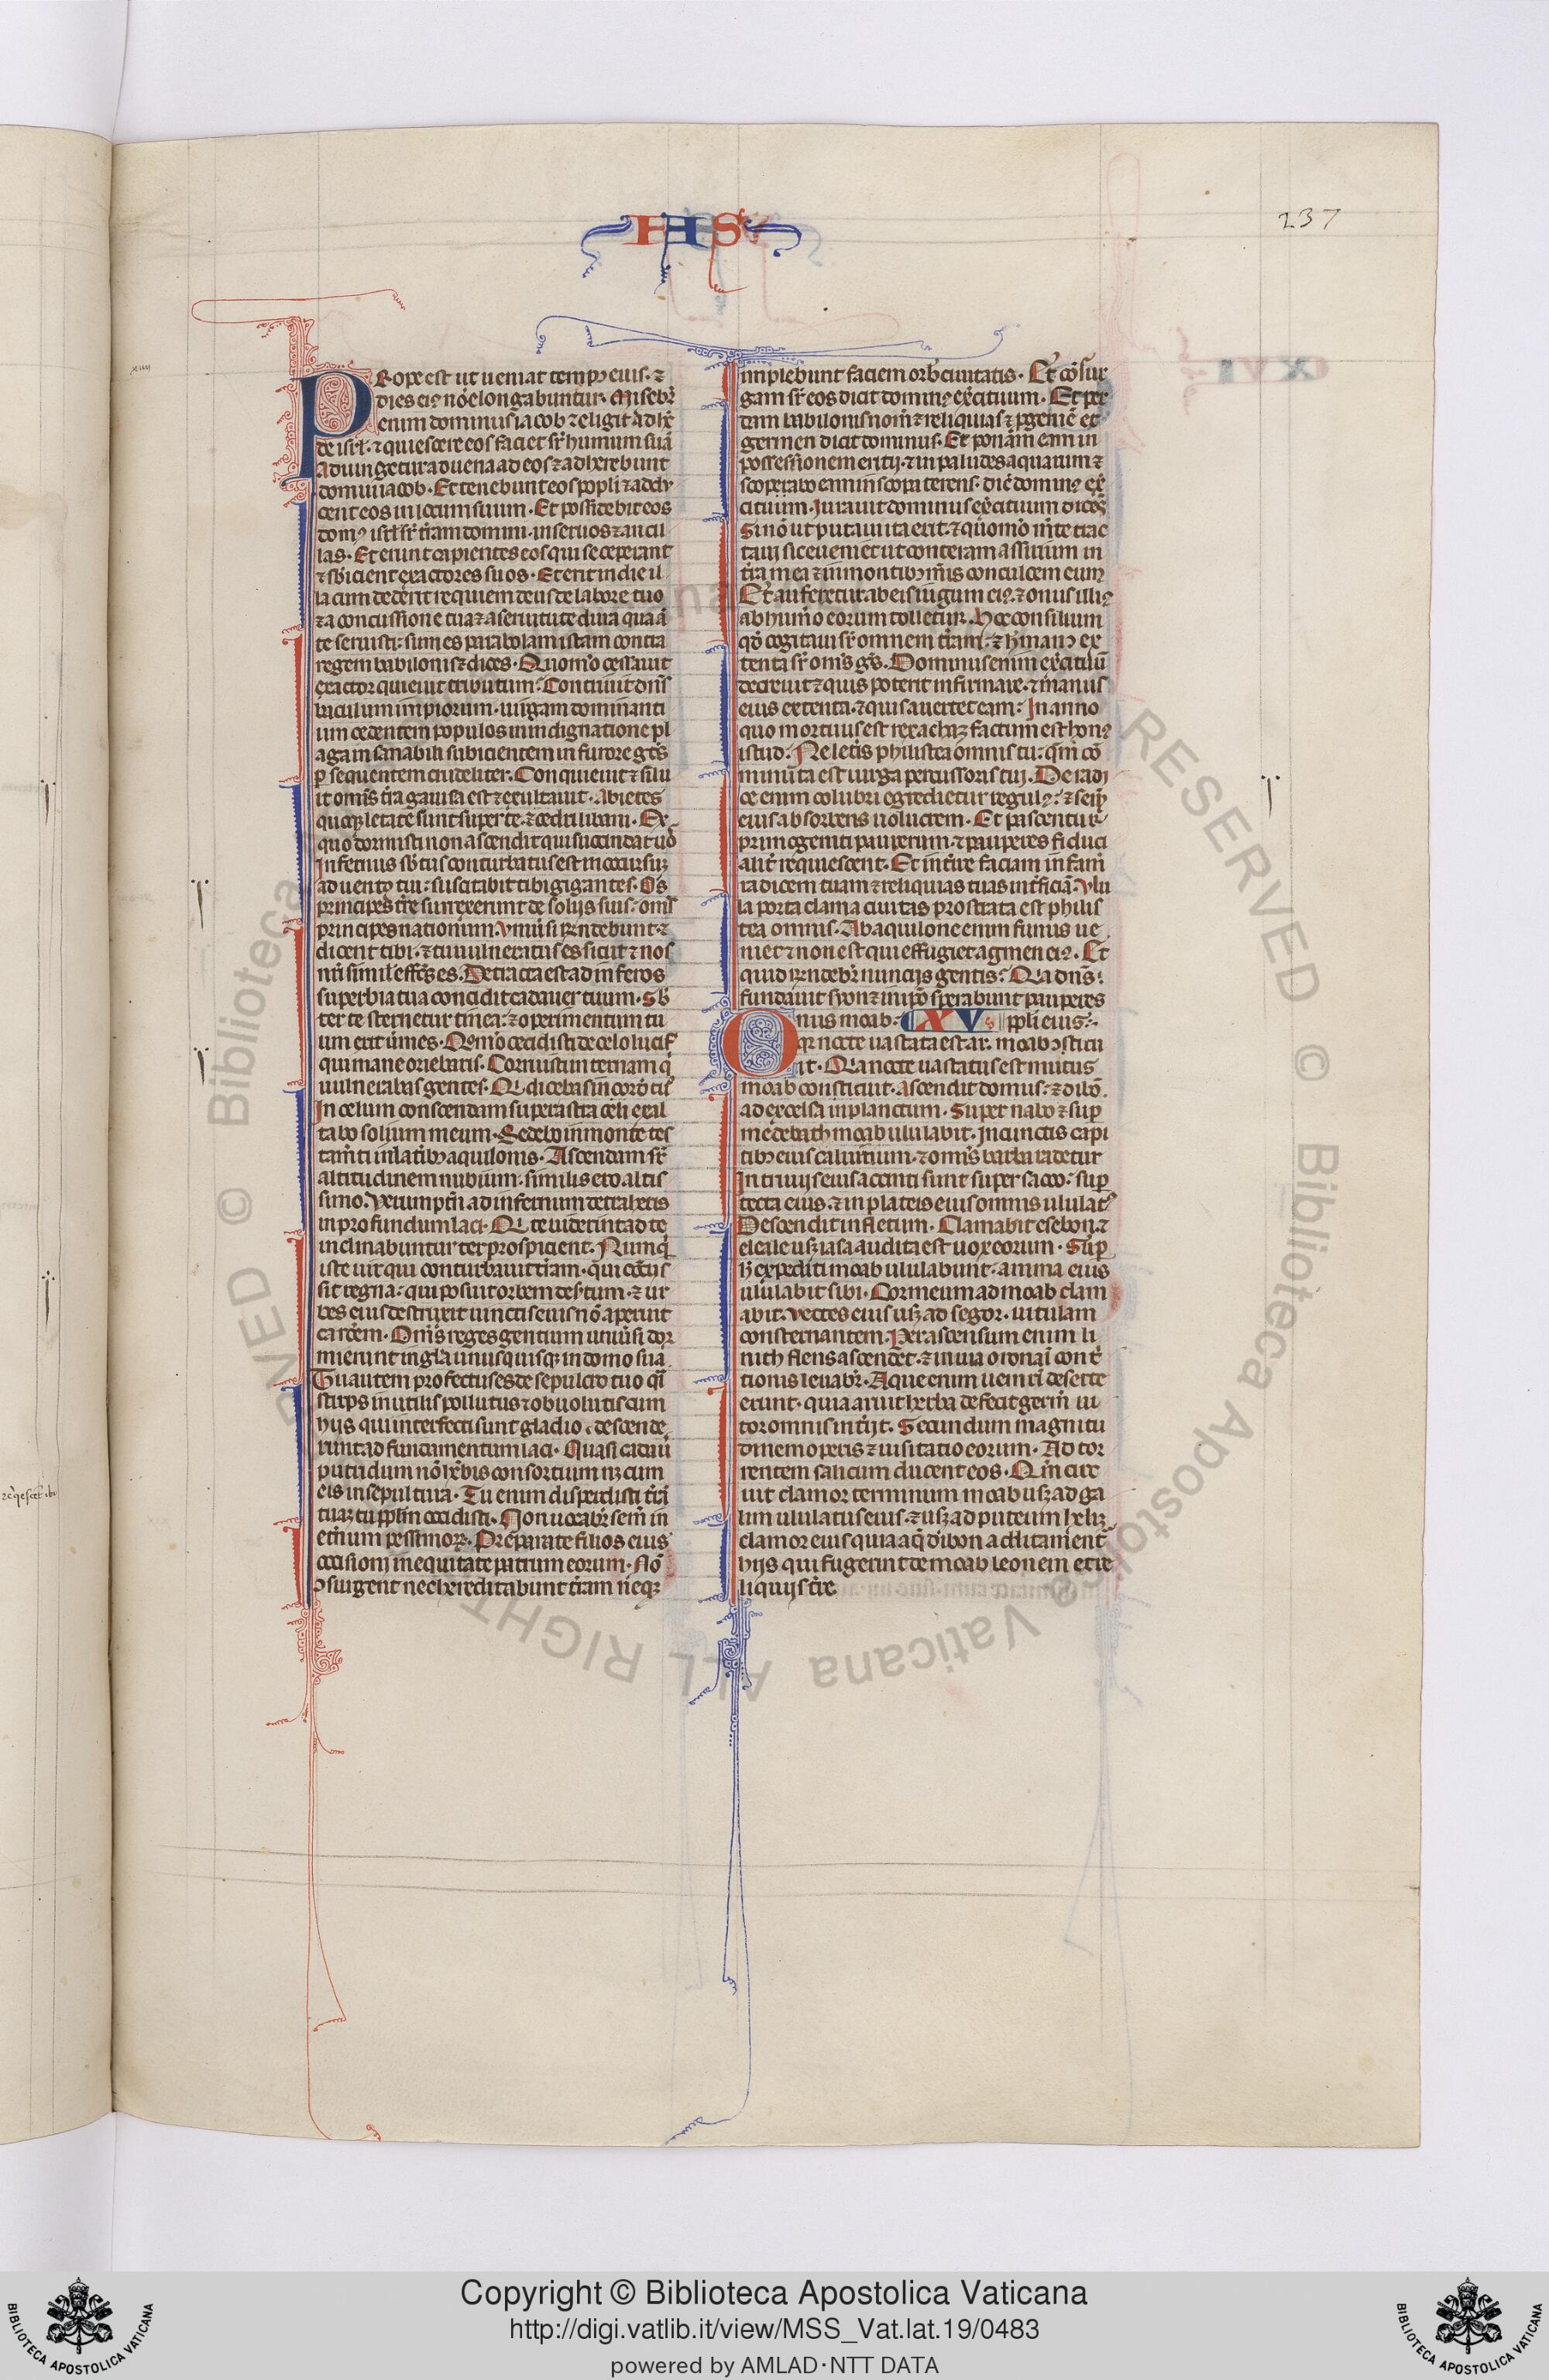 IAS
237
xiiii
PRope est ut ueniat temp᷒ eius. ⁊
dies ei᷒ nō elongabuntur. Misebr̄
enim dominus iacob ⁊ eligit adhc̄
de isrł. ⁊ quiescere eos faciet sr̄ humum suā
Adiungetur aduena ad eos ⁊ adherebunt
domui iacob. Et tenebunt eos popłi ⁊ addu
cent eos in locum suum. Et possidebit eos
dom᷒ isrł sr̄ tr̄am domini. in seruos ⁊ ancil
las. Et erunt capientes eos qui se ceperant
⁊ sbicient exactores suos. Et erit in die il
la cum dederit requiem deus de labore tuo
⁊ a concussione tua ⁊ a seruitute dura qua āͣ
te seruisti: sumes parabolam istam contra
regem babilonis ⁊ dices. Quomo cessauit
exactor quieuit tributum: Contriuit dn̄s
baculum impiorum. uirgam dominanti
um cedentem populos in indignatione pl
aga insanabili subicientem in furore gētes
ꝑsequentem crudeliter. Conquieuit ⁊ silu
it omīs tr̄a gauisa est ⁊ exultauit. Abietes
quoqꝫ letate sunt super te. ⁊ cedri libani. Ex
quo dormisti non ascendit qui succendat uō
Infernus sb̄tus conturbatus est in occursuꝫ
aduent᷒ tui: suscitabit tibi gigantes. Om̄s
principes tr̄e surrexerunt de solijs suis. om̄s
principes nationum. Vniuīsi rn̄debunt. ⁊
dicent tibi. ⁊ tu uulneratus es sicut ⁊ nos
nr̄i simił effcūs es. Detracta est ad inferos
superbia tua concidit cadauer tuum. Sb̄
ter te sternetur tinea: ⁊ operimentum tu
um erit ūmes. Qͦmo cecidisti de celo lucif̄
qui mane oriebaris. Corruisti in terram q̄
uulnerabas gentes. Qͥ dicebas in cord̄ tuͦ
In celum conscendam super astra celi exal
tabo solium meum. Sedebo in monte tes
tam̄ti in lat̄ib᷒ aquilonis. Ascendam sr̄
altitudinem nubium. similis ero altis
simo. Verumptn̄ ad infernum detraheris
in profundum laci. Qͥ te uiderint ad te
inclinabuntur te ꝓspicient. Numqͥd
iste uir qui conturbauit tr̄am. qui cōcus
sit regna: qui posuit orbem desertum. ⁊ ur
bes eius destruxit uinctis eius nō aperuit
carc̄em. Om̄s reges gentium uniuīsi dor
mierunt in glā unusquisqꝫ in domo sua
Tu autem proiectus es de sepulcro tuo qͣi
stirps inutilis pollutus ⁊ obuolutus cum
hijs qui interfecti sunt gladio. descende
runt ad fundamentum laci. Quasi cadauͤ
putridum nō hēbis consortium nꝫ cum
eis in sepultura. Tu enim disperdisti tr̄ā
tuaꝫ tu ppłm occidisti. Non uocabr̄ sem̄ in
eternum pessimoꝝ. Preparate filios eius
occisioni in equitate patrum eorum. Nō
ꝯsurgent nec hereditabunt tr̄am neqꝫ
implebunt faciem orb̄ ciuitatis. Et cōsur
gam sr̄ eos dicit domin᷒ ex̄cituum. Et per
dam babilonis nom̄ ⁊ reliquias ⁊ ꝓgeniē et
germen dicit dominus. Et ponam eam in
possessionem ericij. ⁊ in paludes aquarum ⁊
scopabo eam in scopa terens. dic̄ domin᷒ ex̄
cituum. Iurauit dominus ex̄cituum dicēs
Si nō ut putaui ita erit. ⁊ quomo m̄te trac
taui sic eueniet ut conteram assirium in
tr̄a mea ⁊ in montib᷒ m̄is conculcem eum
Et auferetur ab eis iugum ei᷒. ⁊ onus illi᷒
ab humo eorum tolletur. Hoc consilium
qd̄ cogitaui sr̄ omnem tr̄am. ⁊ h̄ man᷒ ex
tenta sr̄ om̄s ges. Dominus enim ex̄cituū
decreuit ⁊ quis poterit infirmare. ⁊ manus
eius extenta. ⁊ quis auertet eam: In anno
quo mortuus est rex achaꝫ factum est hon᷒
istud: Ne letis philistea omnis tu: qm̄ cō
minuta est uirga percussoris tui. De radi
ce enim colubri egredietur regul᷒. ⁊ sem̄
eius absorbens uolucrem. Et pascentur
primogeniti pauperum. ⁊ pauperes fiduci
alit̄ requiescent. Et int̄ire faciam in fam̄
radicem tuam ⁊ reliquias tuas int̄ficiā. Vlu
la porta clama ciuitas prostrata est philis
tea omnis. Ab aquilone enim fumus ue
niet ⁊ non est qui effugiet agmen ei᷒. Et
quid rn̄debr̄ nuncijs gentis: Qͥa dn̄s:
fundauit syon ⁊ in ipō sperabunt pauperes
Onus moab. XV. ppłi eius.
Qͥ nocte uastata est ar. moab ꝯticu
it. Qͥa nocte uastatus est murus
moab conticuit. Ascendit domus: ⁊ dibō.
ad excelsa in planctum. Super nabo ⁊ suꝑ
medebath moab ululabit. In cunctis capi
tib᷒ eius caluitium. ⁊ om̄s barba radetur
In triuijs eius accincti sunt super sacco: suꝑ
tecta eius. ⁊ in plateis eius omnis ululat᷒
Descendit in fletum. Clamabit esebon. ⁊
eleale usqꝫ iasa audita est uox eorum. Suꝑ
h̄ expediti moab ululabunt. anima eius
ululabit sibi. Cor meum ad moab clam
abit. Vectes eius usqꝫ ad segor. uitulam
consternantem. Per ascensum enim lu
uith flens ascendet. ⁊ in uia oronaī cont̄
tionis leuabr̄. Aque enim nemrī deserte
erunt. quia aruit herba defecit germ̄ ui
ror omnis int̄ijt. Secundum magnitu
dinem operis ⁊ uisitatio eorum. Ad tor
rentem salicum ducent eos. Qm̄ circ
uit clamor terminum moab usqꝫ ad ga
lim ululatus eius. ⁊ usqꝫ ad puteum helꝫ
clamor eius quia aq̄ dibon additam̄ent
hijs qui fugerint de moab leonem et re
liquijs tr̄e
Copyright © Biblioteca Apostolica Vaticana
http://digi.vatlib.it/view/MSS_Vat.lat.19/0483
powered by AMLAD·NTT DATA
BIBLIOTECA APOSTOLICA VATICANA
BIBLIOTECA APOSTOLICA VATICANA